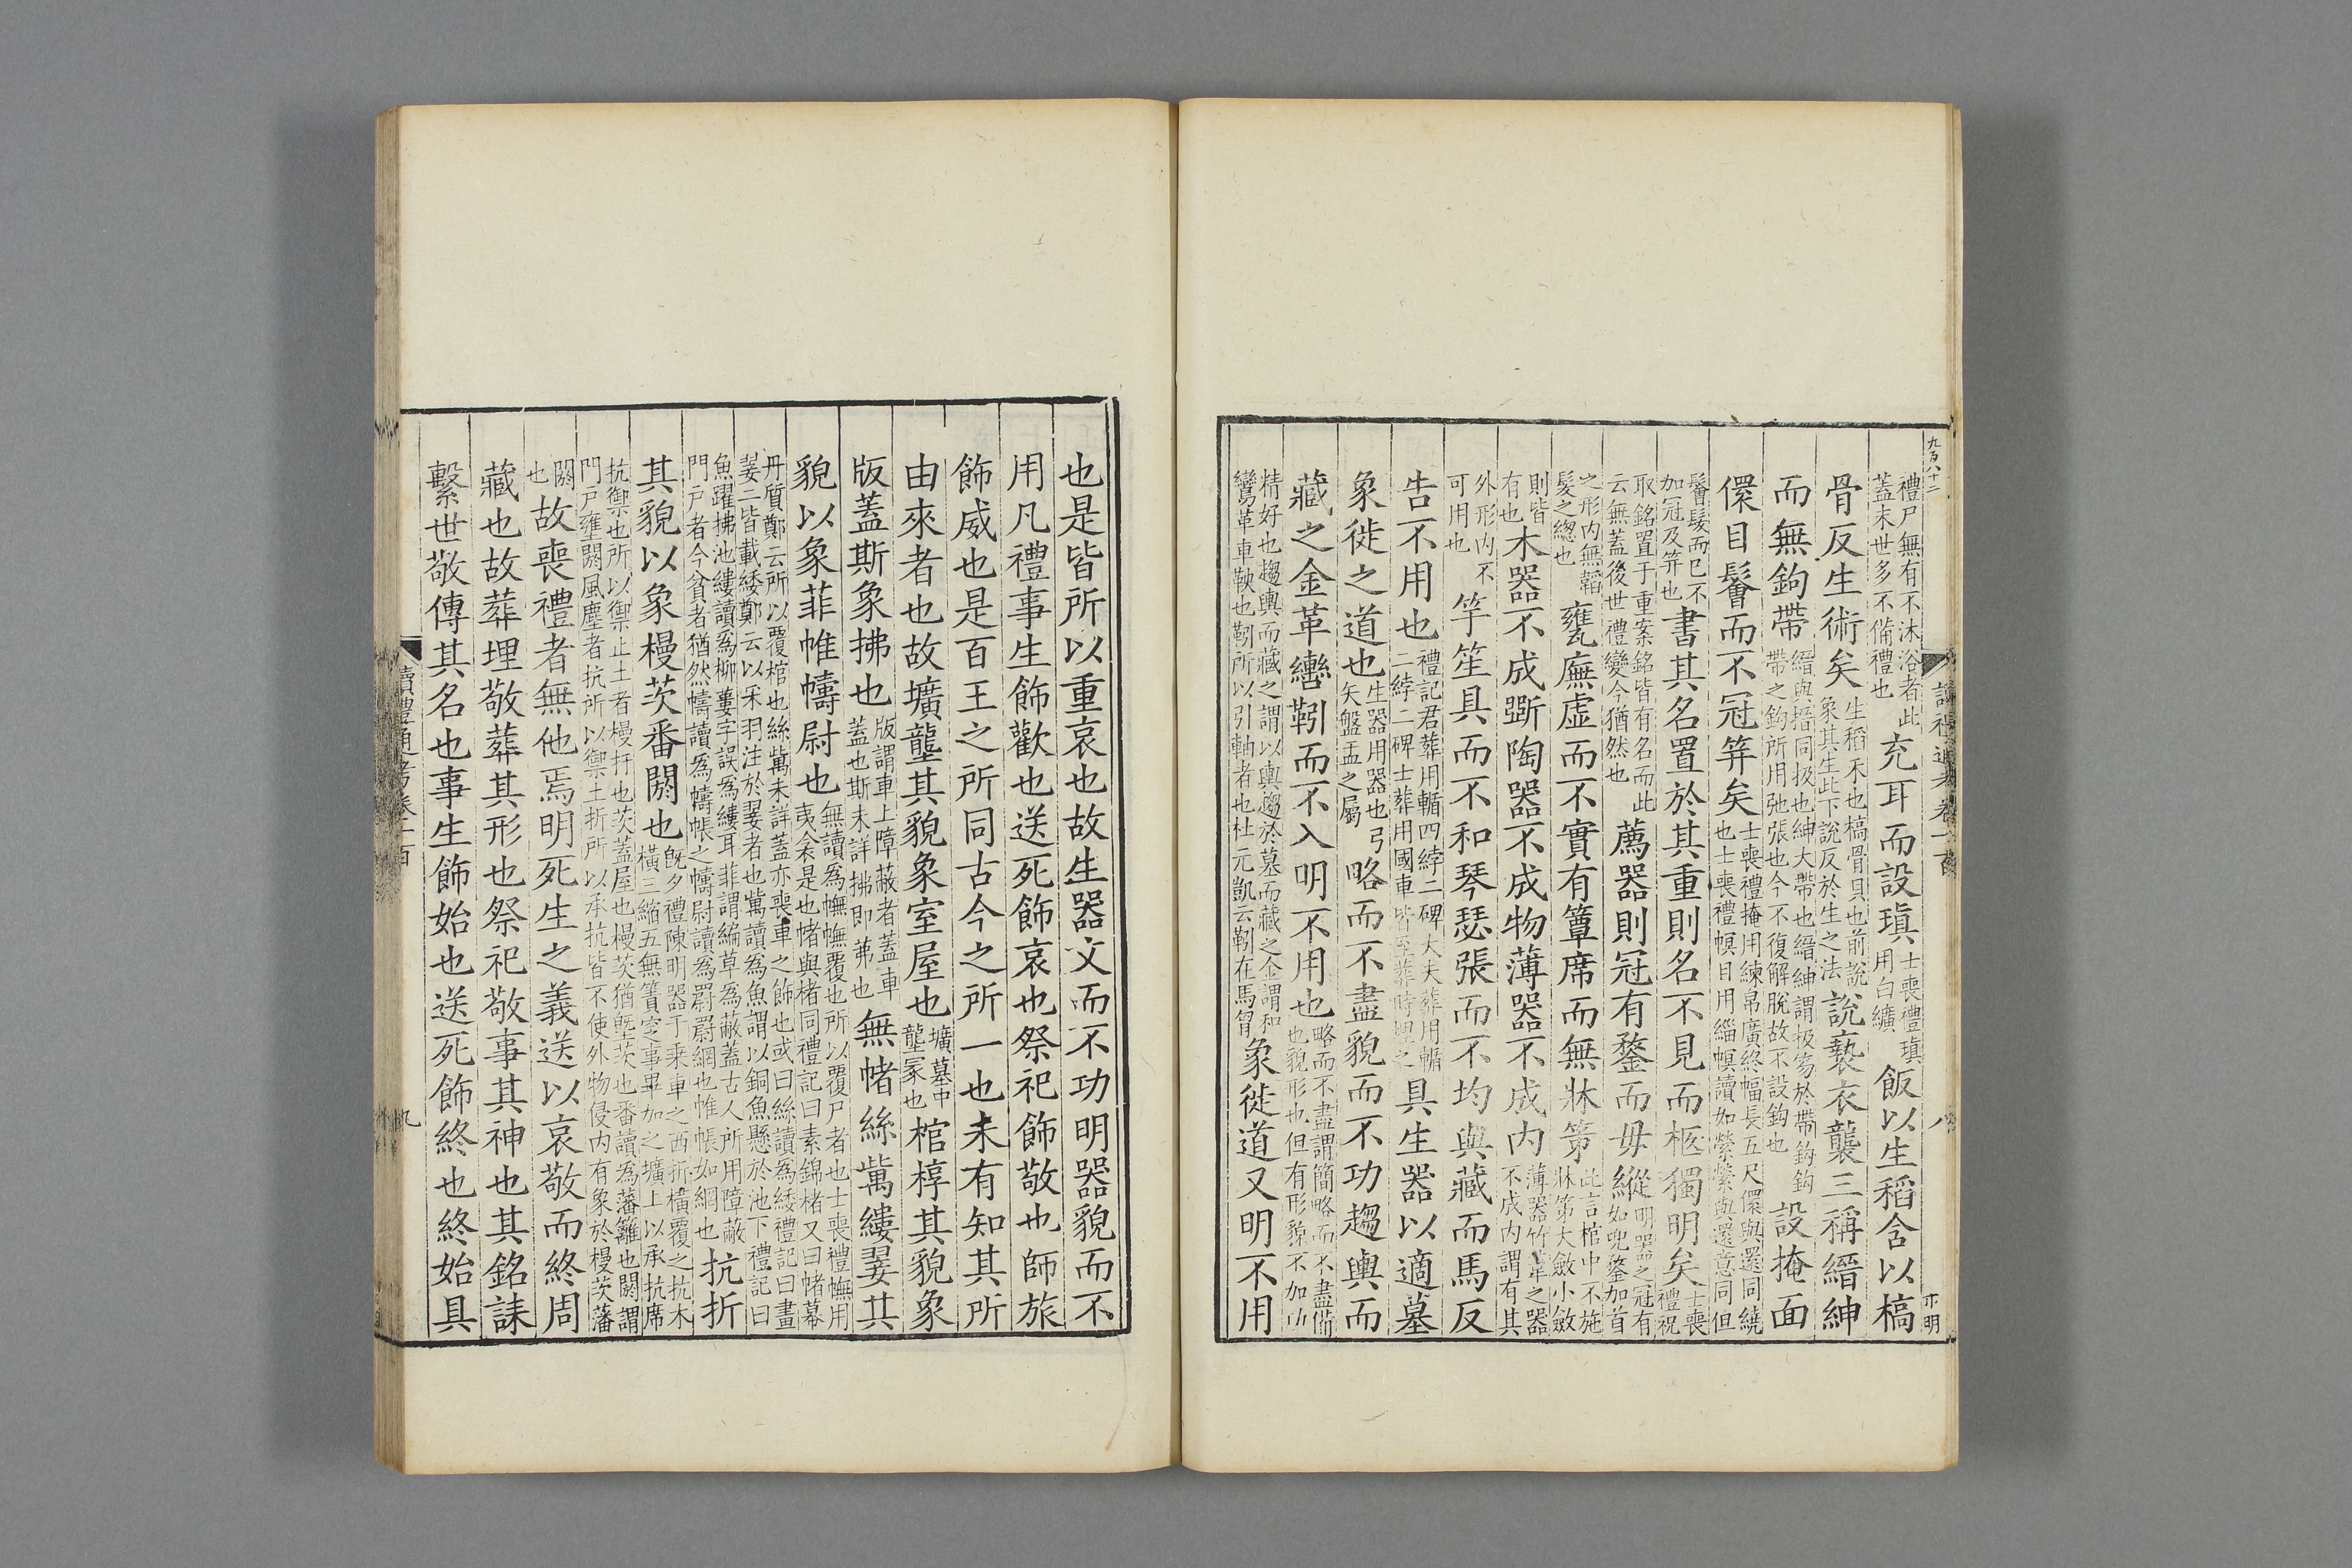 九百八十二
讀禮通考卷一百
八
禮尸無有不沐浴者此蓋末世多不備禮也充耳而設瑱士喪禮瑱用白纊飯以生稻含以槁
骨反生術矣生稻米也槁骨貝也前說象其生此下說反於生之法說褻衣襲三稱縉紳
而無鉤帶縉與搢同扱也紳大帶也縉紳謂扱笏於帶鉤鉤帶之鉤所用弛張也今不復解脫故不設鉤也設掩面
儇目鬠而不冠筓矣士喪禮掩用練帛廣終幅長五尺儇與還同繞也士喪禮幎目用緇幎讀如縈縈與還意同但
鬠髮而已不加冠及筓也書其名置於其重則名不見而柩獨明矣士喪禮祝
取銘置于重案銘皆有名而此云無蓋後世禮變今猶然也薦器則冠有鍪而毋縱明器之冠有如兜鍪加首
之形内無韜髮之緫也甕廡虛而不實有簟席而無牀笫此言棺中不施牀笫大斂小斂
則皆有也木器不成斲陶器不成物薄器不成内薄器竹葦之器不成内謂有其
外形内不可用也竽笙具而不和琴瑟張而不均輿藏而馬反
告不用也禮記君葬用輴四綍二碑大夫葬用輴二綍二碑士葬用國車皆至葬時埋之具生器以適墓
象徙之道也生器用器也弓矢盤盂之屬略而不盡貌而不功趨輿而
藏之金革轡靷而不入明不用也略而不盡謂簡略而不盡備也貌形也但有形貌不加功
精好也趨輿而藏之謂以輿趨於墓而藏之金謂和鸞革車鞅也靷所以引軸者也杜元凱云靷在馬胷象徙道又明不用
也是皆所以重哀也故生器文而不功明器貌而不
用凡禮事生飾歡也送死飾哀也祭祀飾敬也師旅
飾威也是百王之所同古今之所一也未有知其所
由來者也故壙壟其貌象室屋也壙墓中壟冢也棺椁其貌象
版蓋斯象拂也版謂車上障蔽者蓋車蓋也斯未詳拂即茀也無帾絲歶縷翣其
貌以象菲帷幬尉也無讀爲幠幠覆也所以覆尸者也士喪禮幠用夷衾是也帾與楮同禮記曰素錦楮又曰帾幕
丹質鄭云所以覆棺也絲歶未詳蓋亦喪車之飾也或曰絲讀爲綏禮記曰畫翣二皆載綏鄭云以采羽注於翣者也歶讀爲魚謂以銅魚懸於池下禮記曰
魚躍拂池縷讀爲柳蔞字誤爲縷耳菲謂編草爲蔽蓋古人所用障蔽門戶者今貧者猶然幬讀爲幬帳之幬尉讀爲罻罻網也帷帳如網也抗折
其貌以象槾茨番閼也旣夕禮陳明器于乘車之西折橫覆之抗木橫三縮五無簀窆事畢加之壙上以承抗席
抗禦也所以禦止土者槾扜也茨蓋屋也槾茨猶墍茨也番讀爲藩籬也閼謂門戶壅閼風塵者抗所以禦土折所以承抗皆不使外物侵内有象於槾茨藩
閼也故喪禮者無他焉明死生之義送以哀敬而終周
藏也故葬埋敬葬其形也祭祀敬事其神也其銘誄
繫世敬傳其名也事生飾始也送死飾終也終始具
讀禮通考卷一百
九